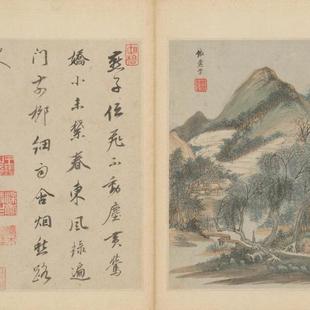 燕子低飛不動塵黄鶯
嬌小未禁春東風綠遍
門前柳細雨含烟愁路
人